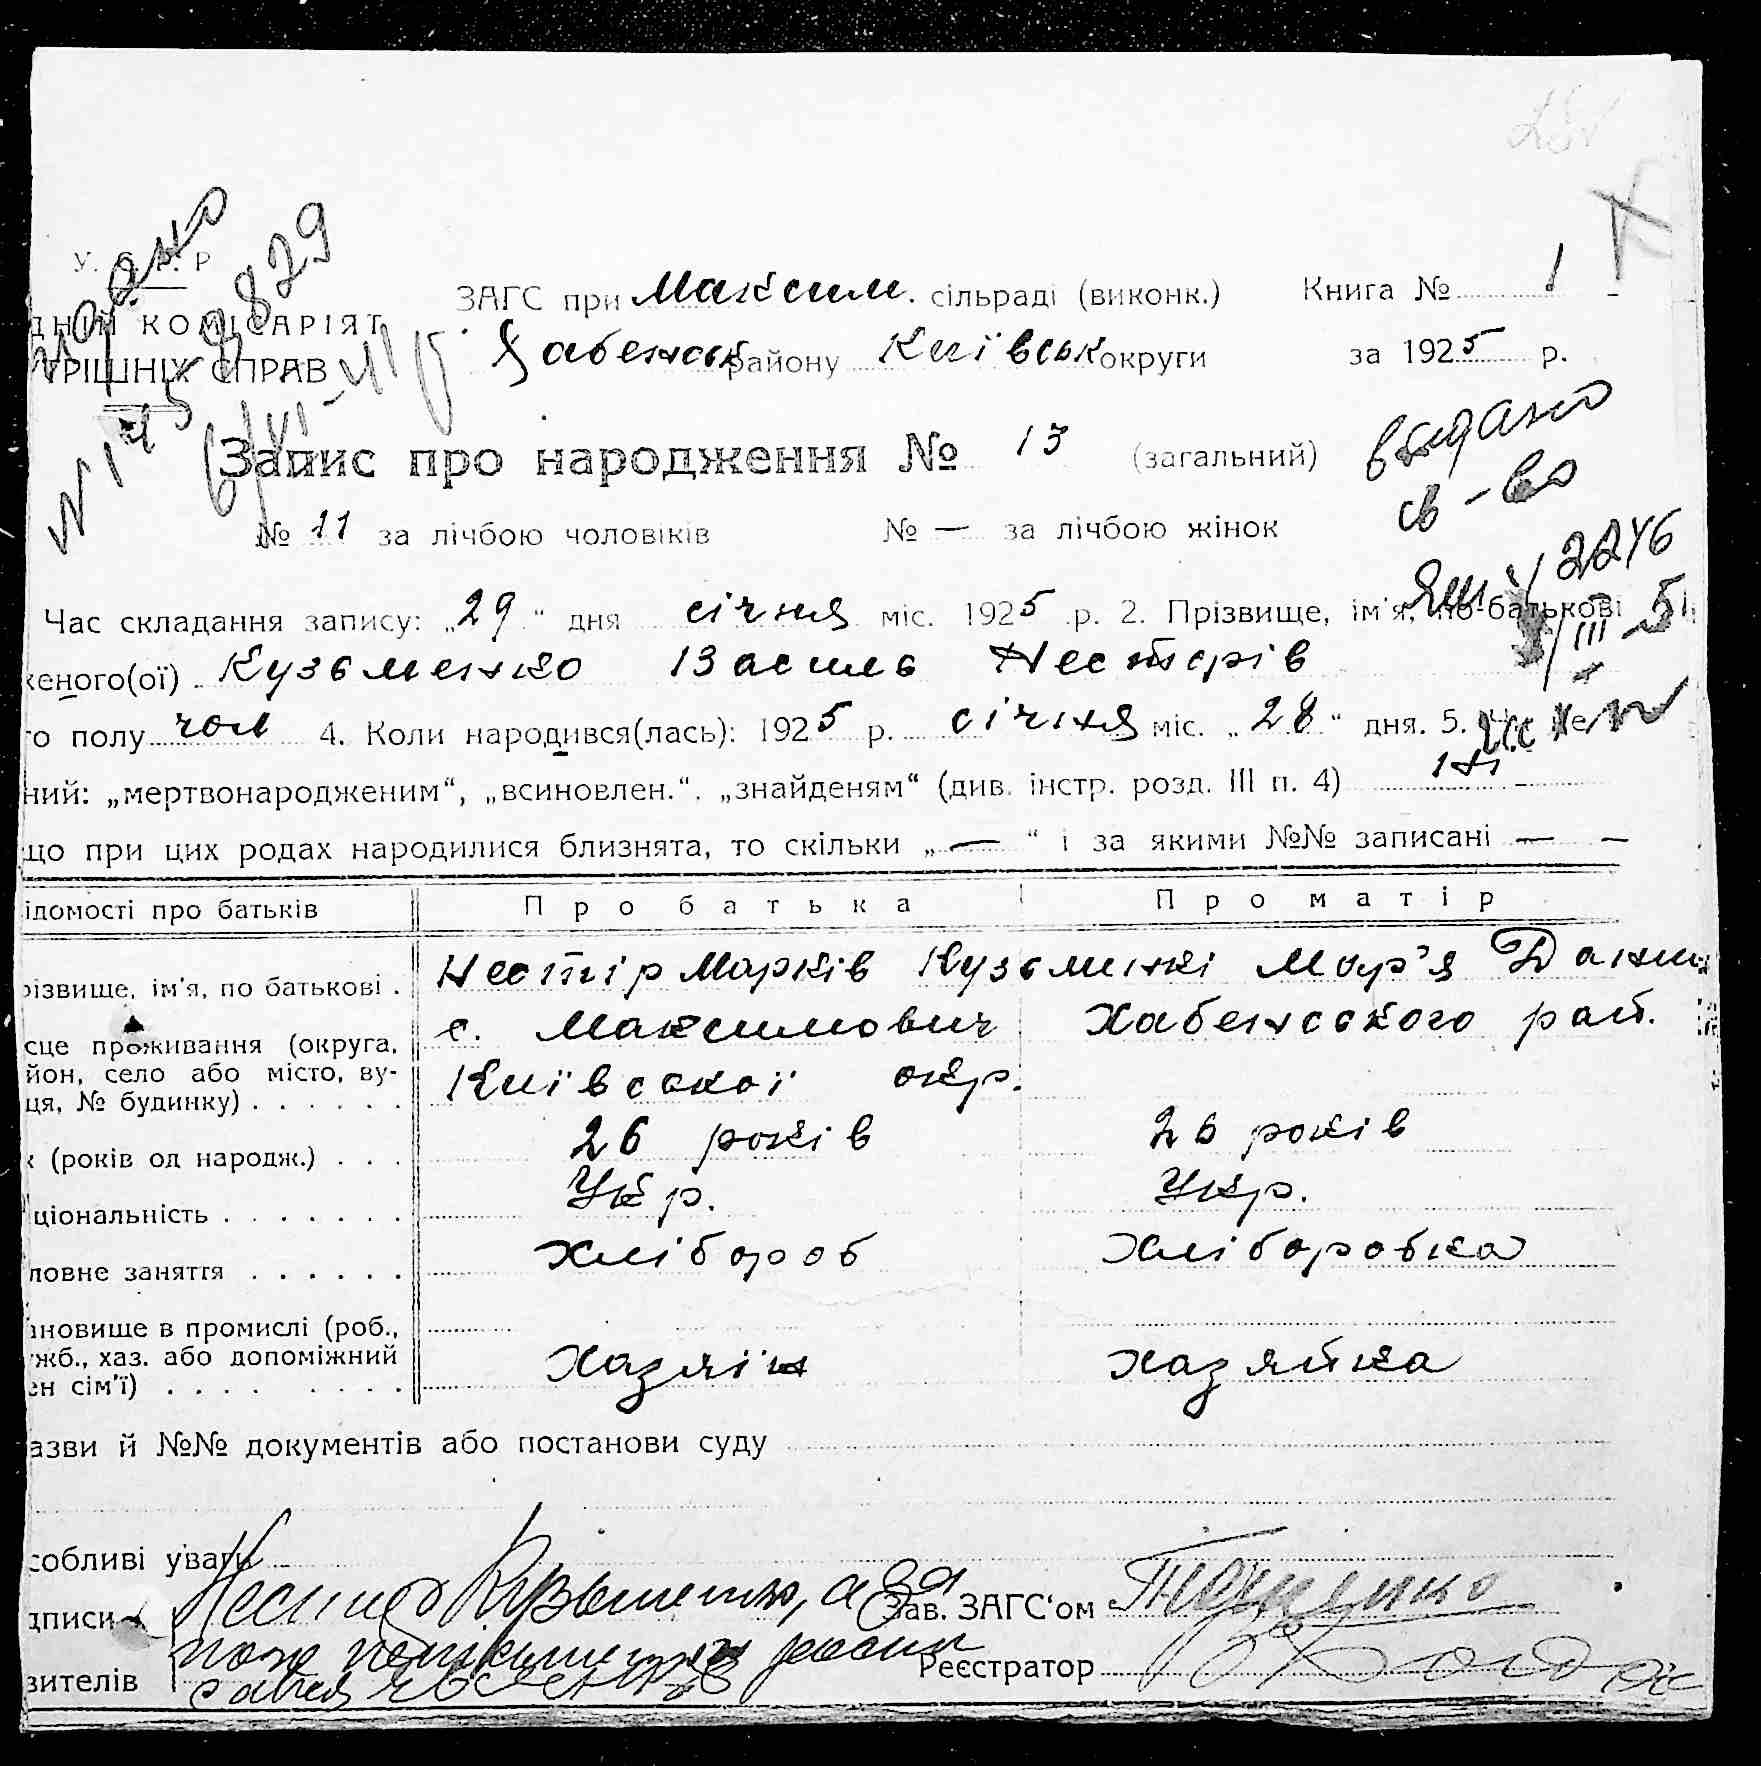 У. С. Р. Р
ДНІЙ КОМІСАРІЯТ
ТРІШНІХ СПРАВ
видано
ЗАГС при Максим. сільраді (виконк.)
Книга № 1
Хабенськ району Київськ округи
за 1925 р.
Запис про народження № 13 (загальний)
видано
св-во
№ 11 за лічбою чоловіків № — за лічбою жінок
Час складання запису: „29“ дня січня міс. 1925 р. 2. Прізвище, ім'я, по-батькові
женого(ої) Кузьменко Василь Несторів
го полу чол 4. Коли народився(лась): 1925 р. січня міс. „28“ дня. 5.
ний: „мертвонародженим“, „всиновлен.“, „знайденям“ (див. інстр. розд. III п. 4) ні
що при цих родах народилися близнята, то скільки „—“ і за якими №№ записані — —
ідомості про батьків Про батька Про матір
різвище, ім'я, по батькові . Нестір Марків Кузьминкі Мар'я Данил
сце проживання (округа, с. Максимович Хабенського рай.
йон, село або місто, ву-
ця, № будинку) . . . . . . Київської окр.
к (років од народж.) . . . 26 років 26 років
ціональність . . . . . . . Укр. Укр.
ловне заняття . . . . . . Хлібороб Хліборобка
ановище в промислі (роб.,
ужб., хаз. або допоміжний Хазяїн хазяйка
ен сім'ї) . . . . . . . .
азви й №№ документів або постанови суду
собливі уваги
дписи
Зав. ЗАГС'ом
Реєстратор
вителів